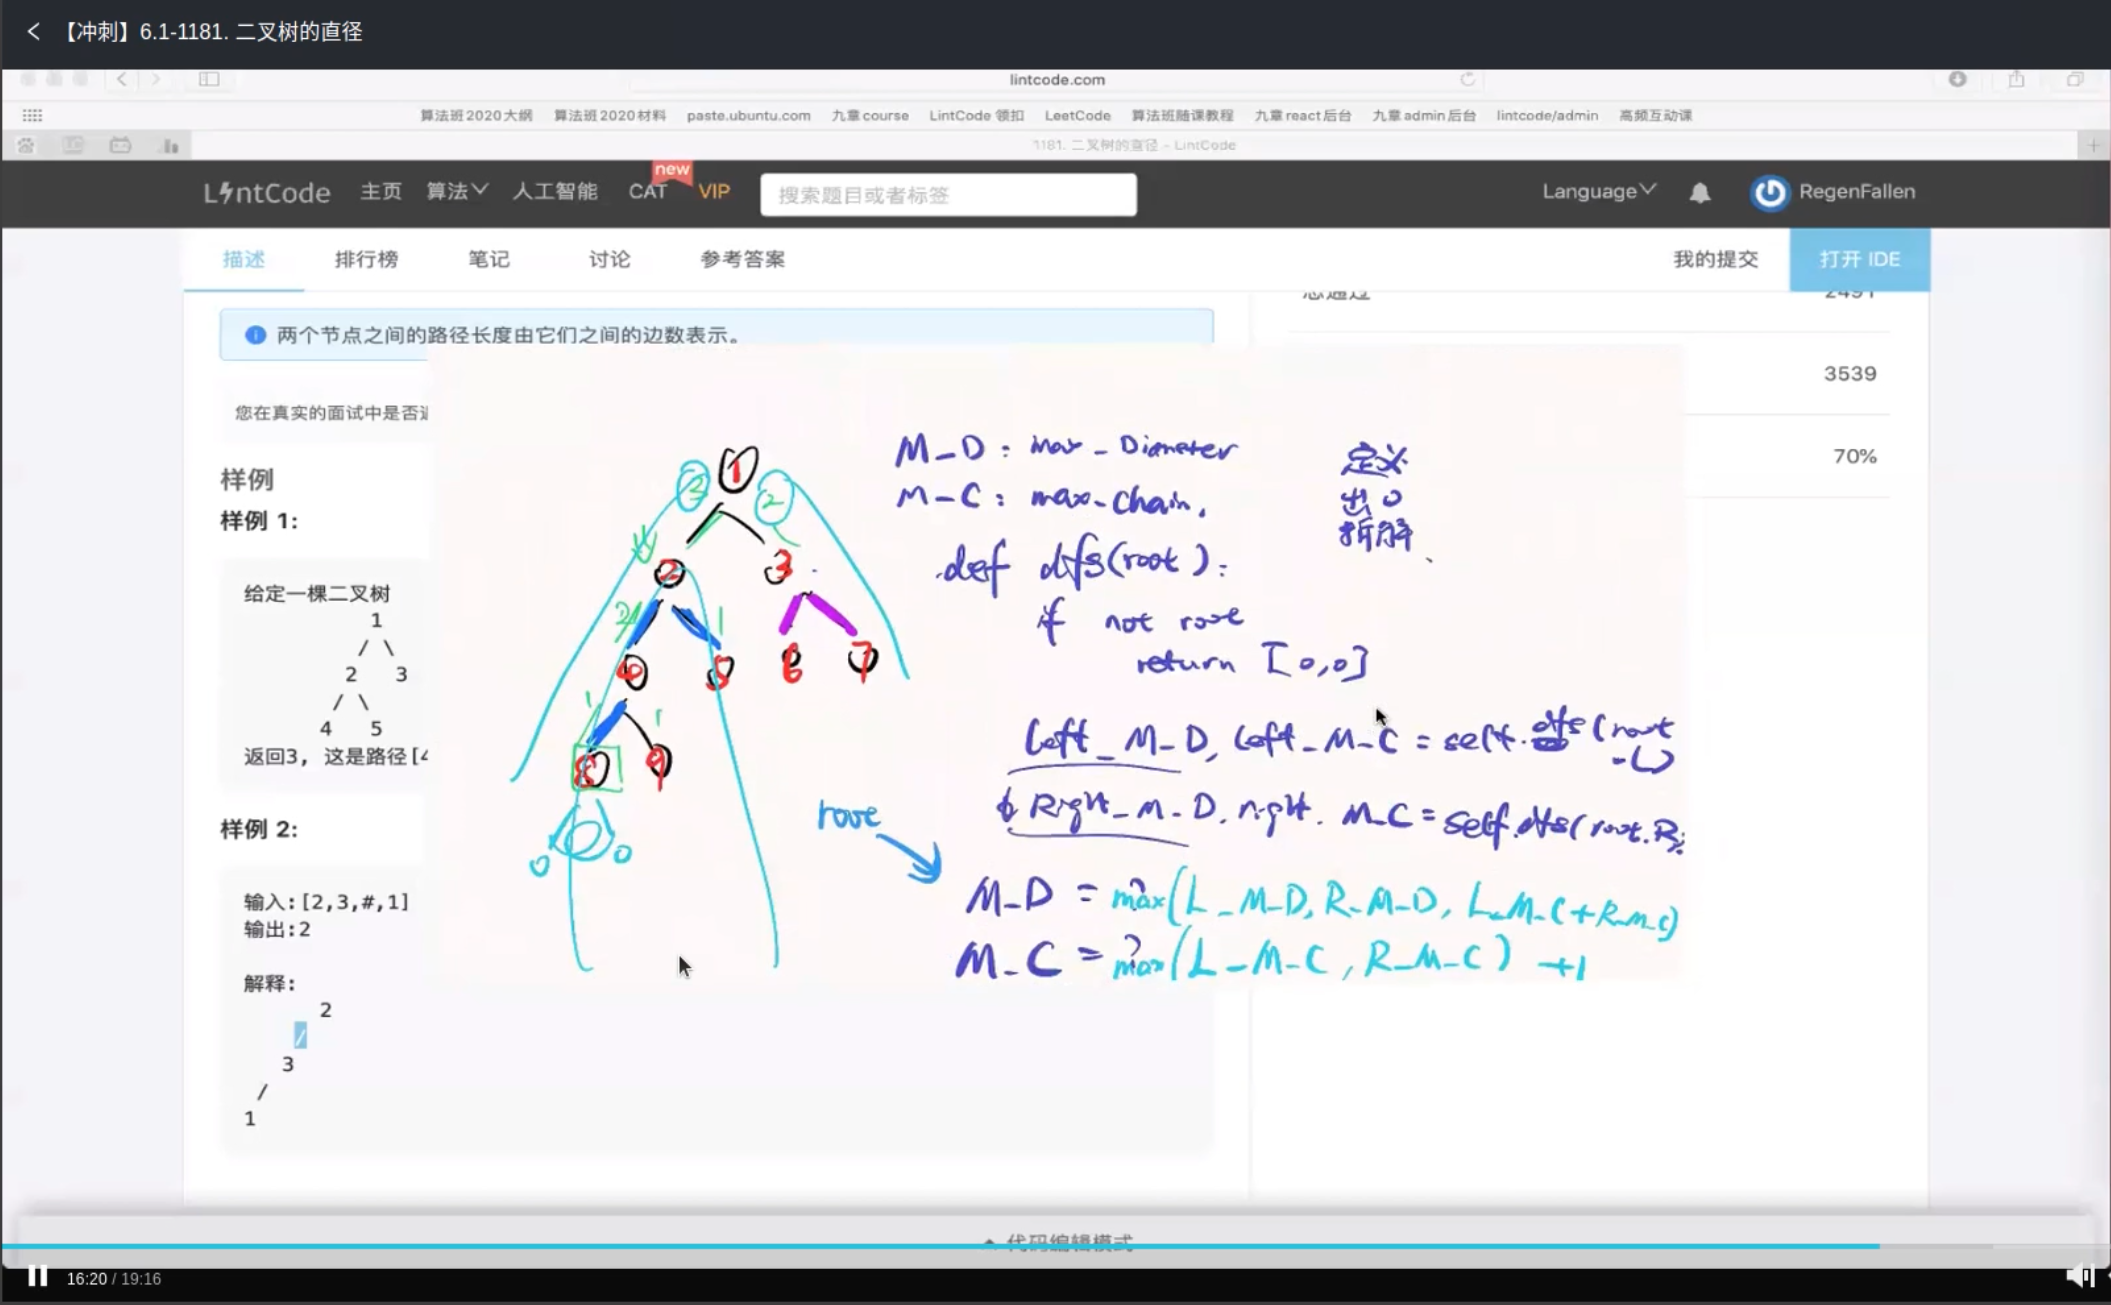 【冲刺】6.1-1181. 二叉树的直径
lintcode.com
算法班2020大纲 算法班2020材料 paste.ubuntu.com 九章course LintCode 领扣 LeetCode 算法班随课教程 九章react后台 九章admin后台 lintcode/admin 高频互动课
1181. 二叉树的直径 - LintCode
LintCode 主页 算法 人工智能 CAT new VIP 搜索题目或者标签 Language RegenFallen
描述 排行榜 笔记 讨论 参考答案 我的提交 打开 IDE
总通过 2491
两个节点之间的路径长度由它们之间的边数表示。
3539
您在真实的面试中是否
70%
样例
样例 1:
给定一棵二叉树
1
/ \
2 3
/ \
4 5
返回3, 这是路径[4
样例 2:
输入:[2,3,#,1]
输出:2
解释:
2
/
3
/
1
3 1 2
2 3
2 1
4 5 6 7
1 1
8 9
0 0
M_D : max_Diameter
M_C : max_chain.
定义
出口
拆解
def dfs(root):
if not root
return [0,0]
Left_M_D, Left_M_C = self.dfs(root.L)
Right_M_D, right_M_C = self.dfs(root.R)
root
M_D = ? max(L_M_D, R_M_D, L_M_C+R_M_C)
M_C = ? max(L_M_C, R_M_C) +1
代码编辑模式
16:20 / 19:16